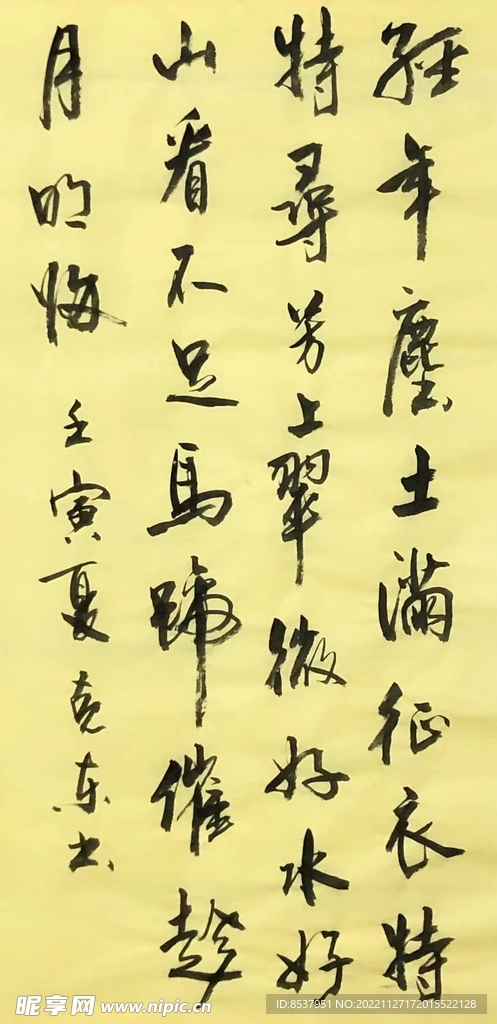 經年塵土滿征衣特
特尋芳上翠微好水好
山看不足馬蹄催趁
月明悔
壬寅夏克东书
昵享网 www.nipic.cn
ID:8537951 NO:20221127172015522128